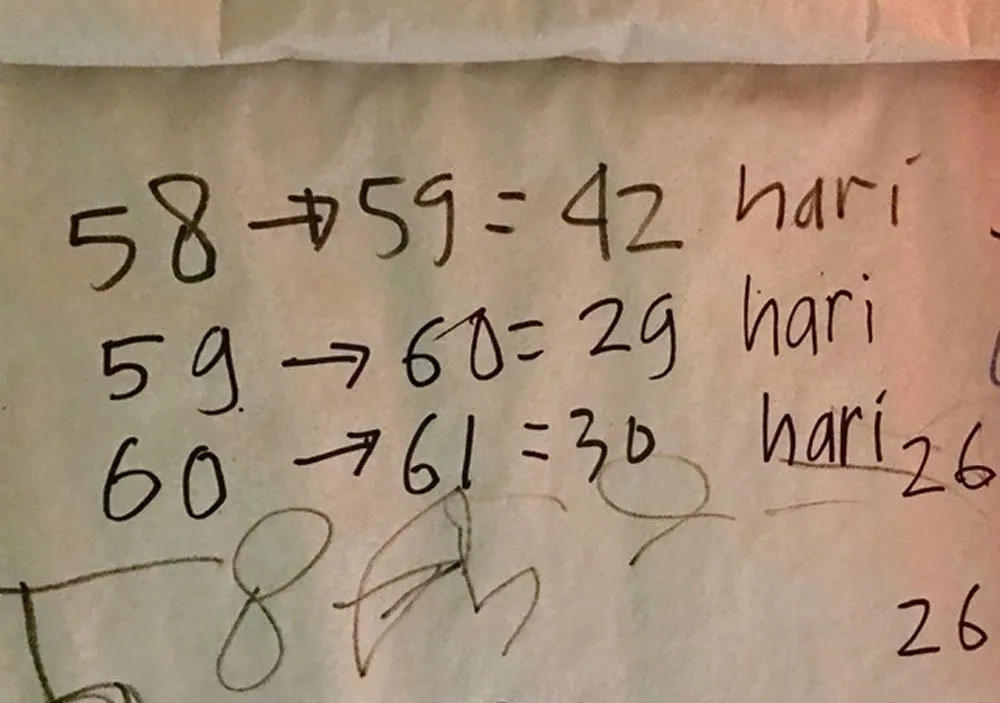 58 → 59 = 42 hari
59 → 60 = 29 hari
60 → 61 = 30 hari 26
58
26